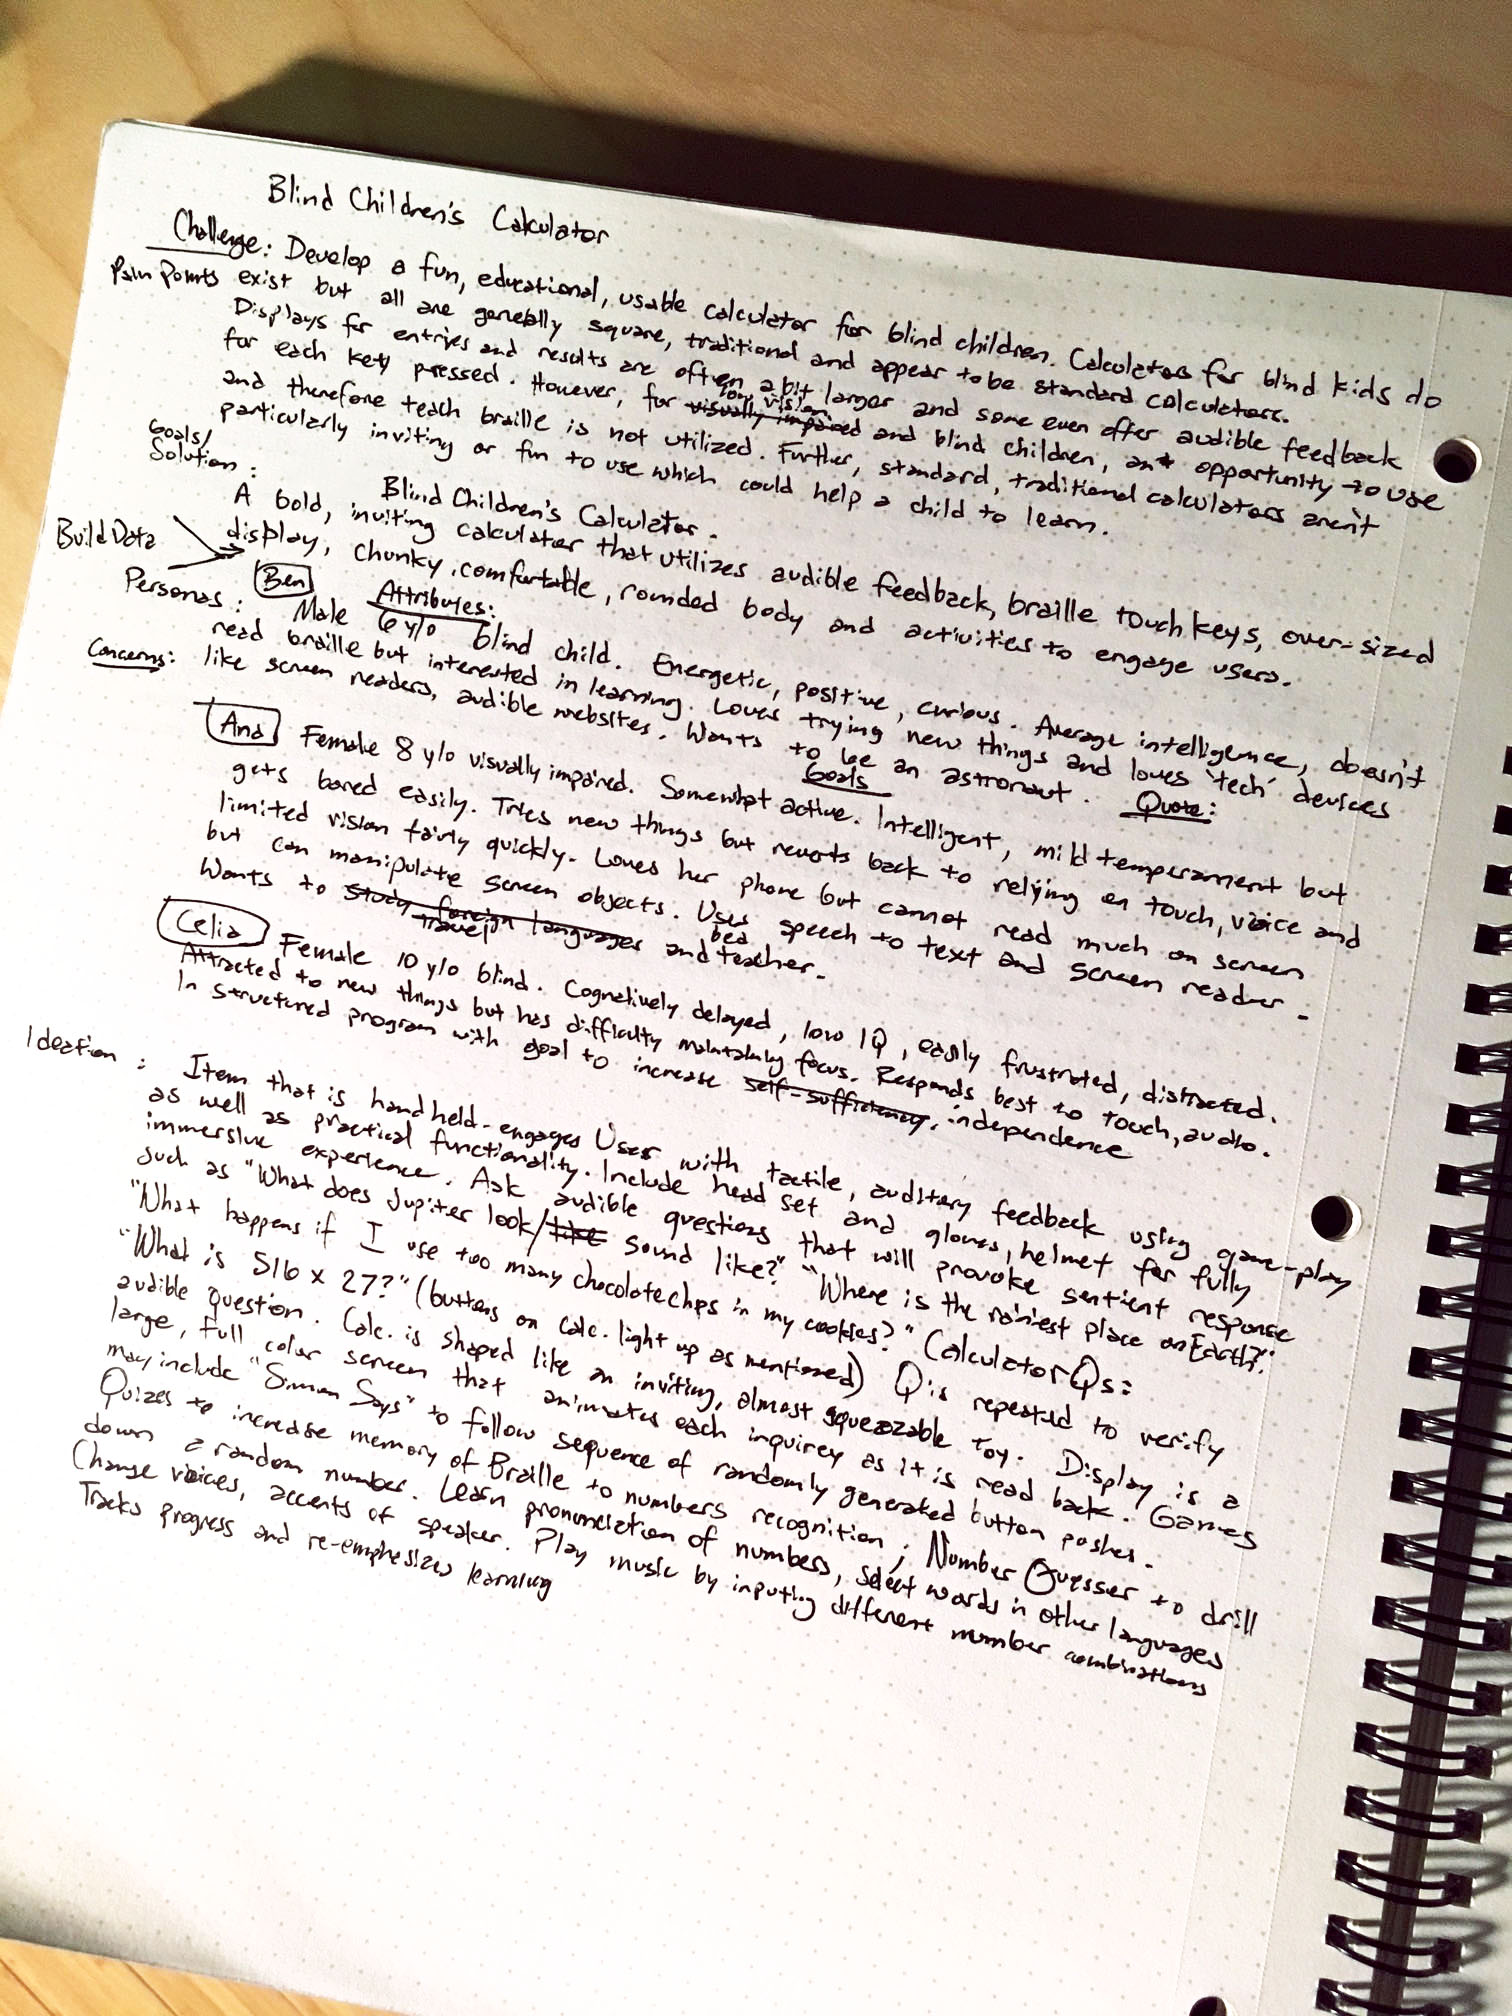 Blind Children's Calculator
Challenge: Develop a fun, educational, usable calculator for blind children. Calculators for blind kids do
Pain Points exist but all are generally square, traditional and appear to be standard calculators.
Displays for entries and results are often a bit larger and some even offer audible feedback
for each key pressed. However, for low vision visually impaired and blind children, an opportunity to use
and therefore teach braille is not utilized. Further, standard, traditional calculators aren't
particularly inviting or fun to use which could help a child to learn.
Goals/
Solution: Blind Children's Calculator.
A bold, inviting calculator that utilizes audible feedback, braille touch keys, over-sized
display, chunky, comfortable, rounded body and activities to engage users.
Build Data
Attributes:
Personas: Ben Male 6 y/o blind child. Energetic, positive, curious. Average intelligence, doesn't
read braille but interested in learning. Loves trying new things and loves 'tech' devices
Concerns: like screen readers, audible websites. Wants to be an astronaut. Quote:
Goals
Ana Female 8 y/o visually impaired. Somewhat active. Intelligent, mild temperament but
gets bored easily. Tries new things but reverts back to relying on touch, voice and
limited vision fairly quickly. Loves her phone but cannot read much on screen
but can manipulate screen objects. Uses speech to text and screen reader.
Wants to study foreign languages travel and be a teacher.
Celia Female 10 y/o blind. Cognatively delayed, low IQ, easily frustrated, distracted.
Attracted to new things but has difficulty maintaining focus. Responds best to touch, audio.
In structured program with goal to increase self-sufficiency, independence
Ideation: Item that is handheld-engages User with tactile, auditory feedback using game-play
as well as practical functionality. Include head set and gloves, helmet for fully
immersive experience. Ask audible questions that will provoke sentient response
such as "What does Jupiter look/like sound like?" "Where is the rainiest place on Earth?"
"What happens if I use too many chocolate chips in my cookies?" Calculator Qs:
"What is 516 x 27?" (buttons on calc. light up as mentioned) Q is repeated to verify
audible question. Calc. is shaped like an inviting, almost squeezable toy. Display is a
large, full color screen that animates each inquirey as it is read back. Games
may include "Simon Says" to follow sequence of randomly generated button pushes.
Quizes to increase memory of Braille to numbers recognition; Number Guesser to drill
down a random number. Learn pronunciation of numbers, select words in other languages
Change voices, accents of speaker. Play music by inputing different number combinations
Tracks progress and re-emphasizes learning